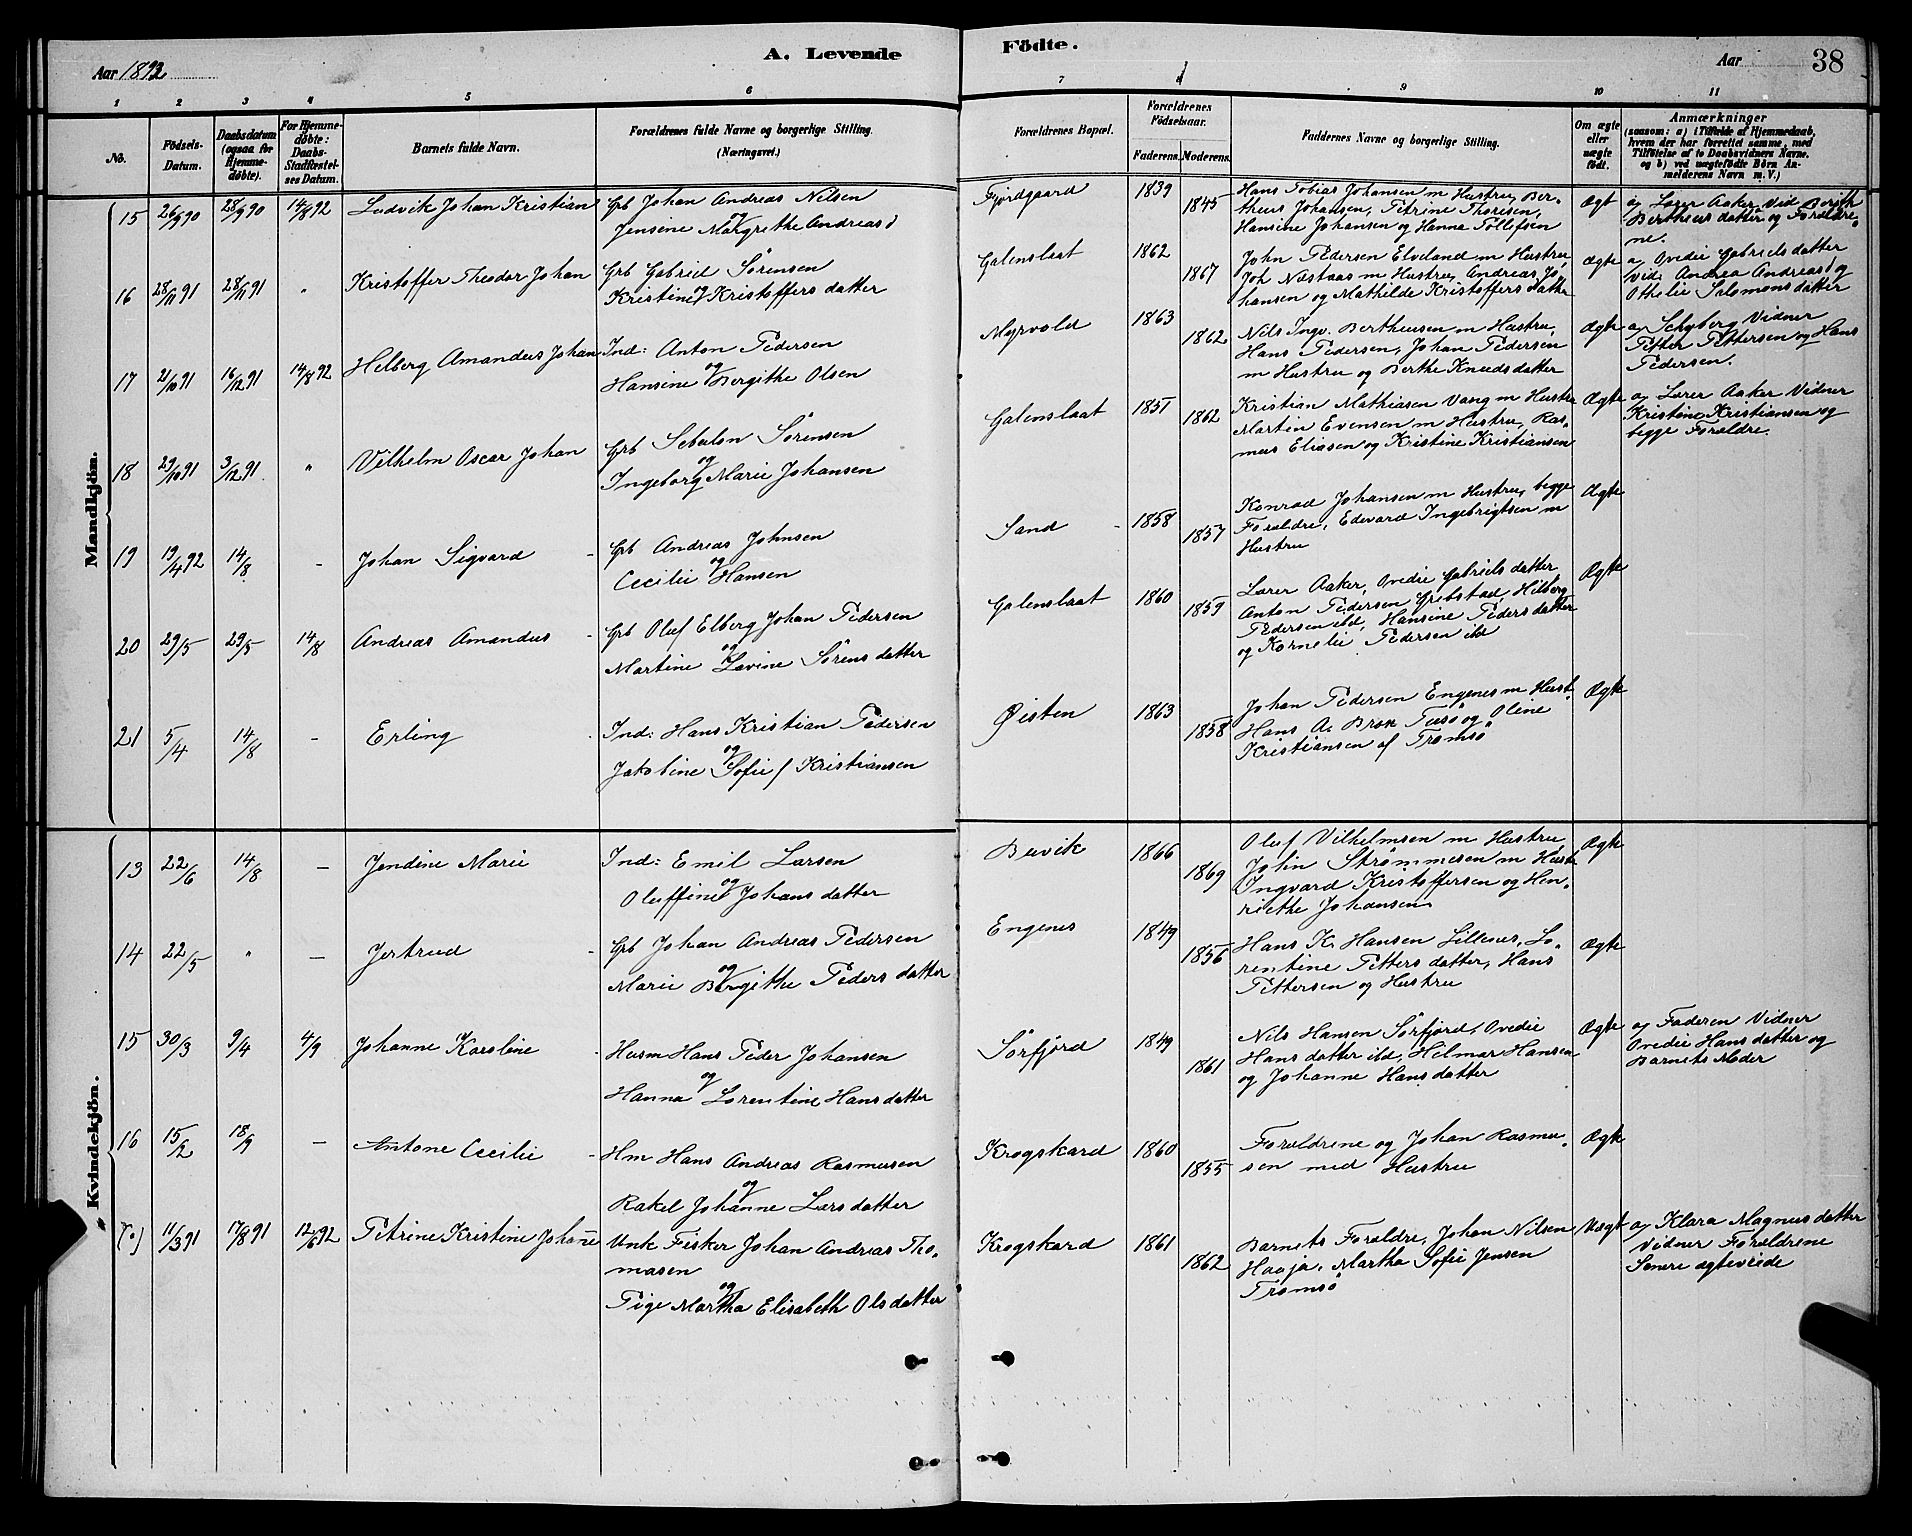 Aar 1892
A. Levende
Födte.
Aar
38
1 2 3 4 5 6 7 8 9 10 11
No.
Födsels-
Datum.
Daabsdatum
(ogsaa for
Hjemme-
döbte).
For Hjemme-
döbte:
Daabs-
Stadfæstel-
ses Datum.
Barnets fulde Navn.
Forældrenes fulde Navne og borgerlige Stilling.
(Næringsvei.)
Forældrenes Bopæl.
Forældrenes
Födselsaar.
Faderens. Moderens.
Faddernes Navne og borgerlige Stilling.
Om ægte
eller
uægte
födt.
Anmærkninger
(saasom: a) i Tilfælde af Hjemmedaab,
hvem der har forrettet samme, med
Tilföielse af to Daabsvidners Navne.
og b) ved uægtefödte Börn An-
melderens Navn m. V.)
Mandkjön.
15 26/9 90 28/9 90 14/8 92 Ludvik Johan Kristian Grb Johan Andreas Nilsen
og
Jensine Margrethe Andreasd
Fjordgaard 1839 1845
Hans Tobias Johansen m Hustru, Ber-
theus Johansen, Petrine Thoresen,
Hansine Johansen og Hanna Tollefsen
Ægt
a, Lærer Aaker Vid Berith
Bertheusdatter og Foræld​re-
ne.
16 28/11 91 28/11 91 " Kristoffer Theodor Johan Grb Gabriel Sörensen
og
Kristine Kristoffersdatter
Galenslaat 1862 1867
John Pedersen Elveland m Hustru
Joh Næstaas m Hustru, Andreas Jo-
hansen og Mathilde Kristoffersdatter
Ægte
a, Ovedie Gabrielsdatter
Vid: Andrea Andreasd og
Othelie Salomonsdatter
17 21/10 91 16/12 91 14/8 92 Hilberg Amandus Johan Ind: Anton Pedersen
og
Hansine Bergithe Olsen
Myrvold 1863 1862
Nils Ingv. Bertheusen m Hustru,
Hans Pedersen, Johan Pedersen
m Hustru og Berthe Knudsdatter
Ægte
a, Schyberg Vidner
Petter Pettersen og Hans
Pedersen.
18 29/10 91 3/12 91 " Vilhelm Oscar Johan Grb Sebulon Sörensen
og
Ingeborg Marie Johansen
Galenslaat 1851 1862
Kristian Mathiasen Vang m Hustru
Martin Evensen m Hustru, Ras-
mus Eliasen og Kristine Kristiansen
Ægte
a, Lærer Aaker Vidner
Kristine Kristiansen og
begge Forældre.
19 19/4 92 14/8 - Johan Sigvard Grb Andreas Johnsen
og
Cecilie Hansen
Sand 1858 1857
Konrad Johansen m Hustru, begge
Forældre, Edevard Ingebrigtsen m
Hustru
Ægte
20 29/5 29/5 14/8 Andreas Amandus Grb Oluf Elberg Johan Pedersen
og
Martine Lovine Sörensdatter
Galenslaat 1860 1859
Lærer Aaker, Ovedie Gabrielsdatter
Anton Pedersen Grebstad, Hilberg
Pedersen ibd, Hansine Pedersdatter
og Kornelie Pedersen ibd
Ægte
21 5/4 14/8 - Erling Ind: Hans Kristian Pedersen
og
Jakobine Sofie f Kristiansen
Øisten 1863 1858
Johan Pedersen Engenes m Hust
Hans A. Brox Tusö og Oline
Kristiansen af Tromsö
Ægte
Kvindekjön.
13 22/6 14/8 - Jendine Marie Ind: Emil Larsen
og
Oluffine Johansdatter
Buvik 1866 1869
Oluf Vilhelmsen m Hustru,
John Strømmesen m Hust
Ingvard Kristoffersen og Hen-
riethe Johansen
Ægte
14 22/5 " - Jertrud Grb Johan Andreas Pedersen
og
Marie Birgithe Pedersdatter
Engenes 1849 1856
Hans K. Hansen Lillenes, Lo-
rentine Pettersdatter, Hans
Pettersen og Hustru
Ægte
15 30/3 9/4 4/9 Johanne Karoline Husm Hans Peder Johansen
og
Hanna Lorentine Hansdatter
Sörfjord 1849 1861
Nils Hansen Sörfjord, Ovedie
Hansdatter ibd, Hilmar Hansen
og Johanne Hansdatter
Ægte
a, Faderen Vidner
Ovedie Hansdatter og
Barnets Moder
16 15/2 18/9 - Antone Cecilie Hm Hans Andreas Rasmusen
og
Rakel Johanne Larsdatter
Krogskard 1860 1855
Forældrene og Johan Rasmu-
sen med Hustru
Ægte
(") 11/3 91 17/8 91 12/6 92 Petrine Kristine Johanne Unk Fisker Johan Andreas Tho-
masen
og
Pige Martha Elisabeth Olsdatter
Krogskard 1861 1862
Barnets Forældre, Johan Nilsen
Haaja, Martha Sofie Jensen
Tromsö
Uægt
a, Klara Magnusdatter
Vidner Forældrene
Senere ægteviede